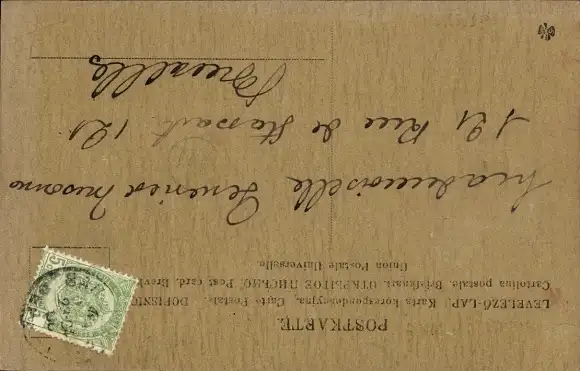 POSTKARTE.
LEVELEZŐ-LAP. Karta korespondencyjna, Carte Postale. DOPISNIC
Cartolina postale, Brefkaart, ОТКРЫТОЕ ПИСЬМО, Post card, Brevk
Union Postale Universelle
Mademoiselle
121 Rue de Stassart 121
Bruxelles
5